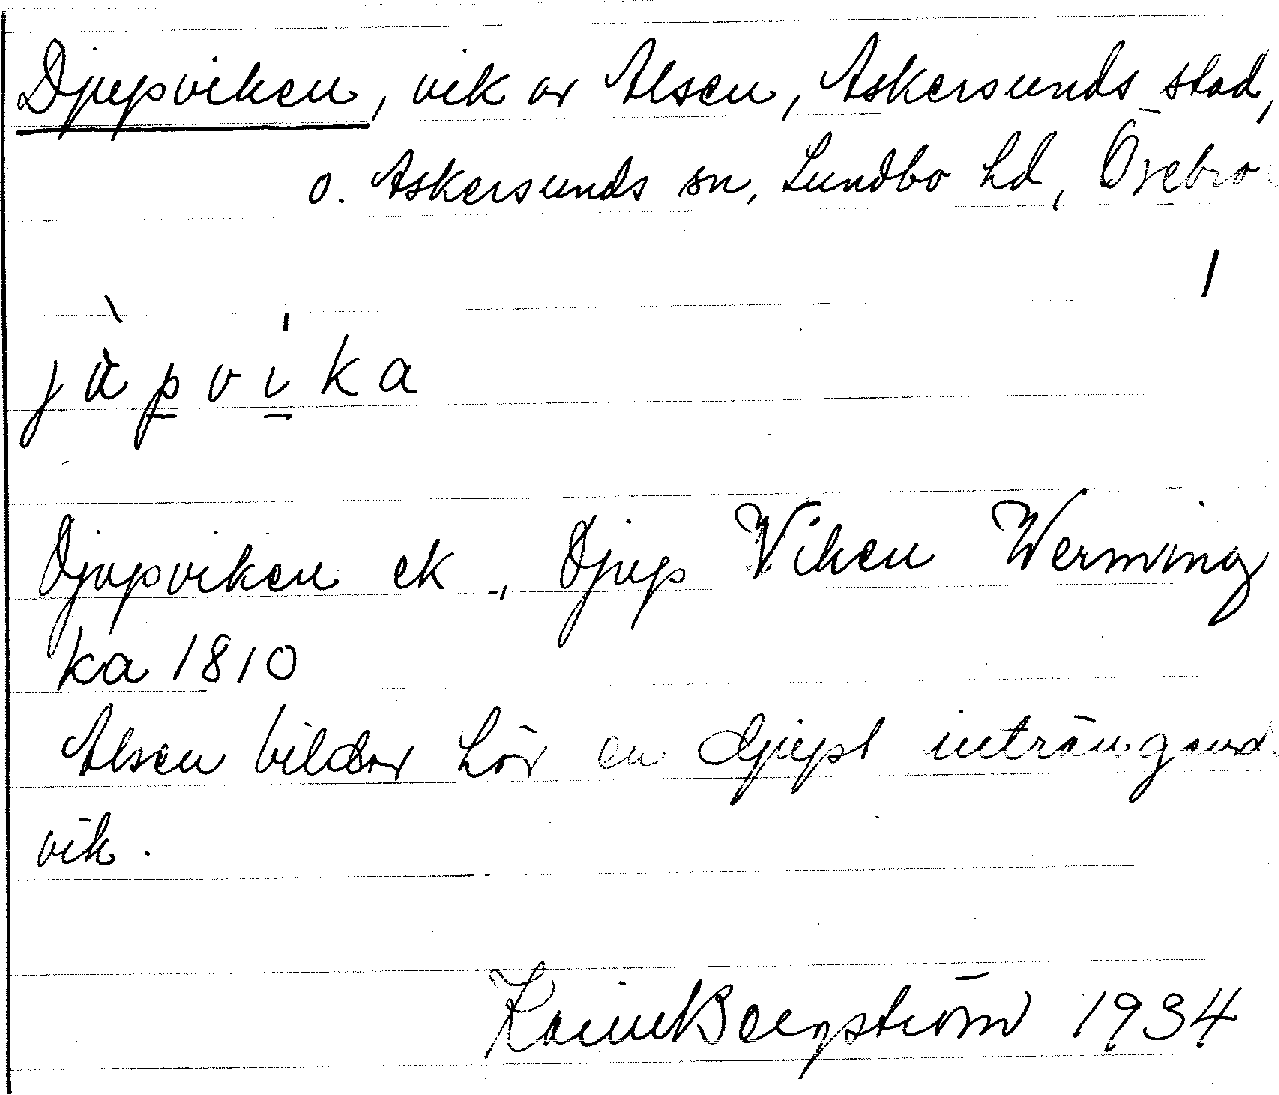 Djupviken, vik av Alsen, Askersunds stad,
o. Askersunds sn, Sundbo hd, Örebro
l
jʉ̀pvika
Djupviken ek., Djup Viken Werming
ka 1810
Alsen bildar här en djupt inträngand
vik.
Karin Bergström 1934